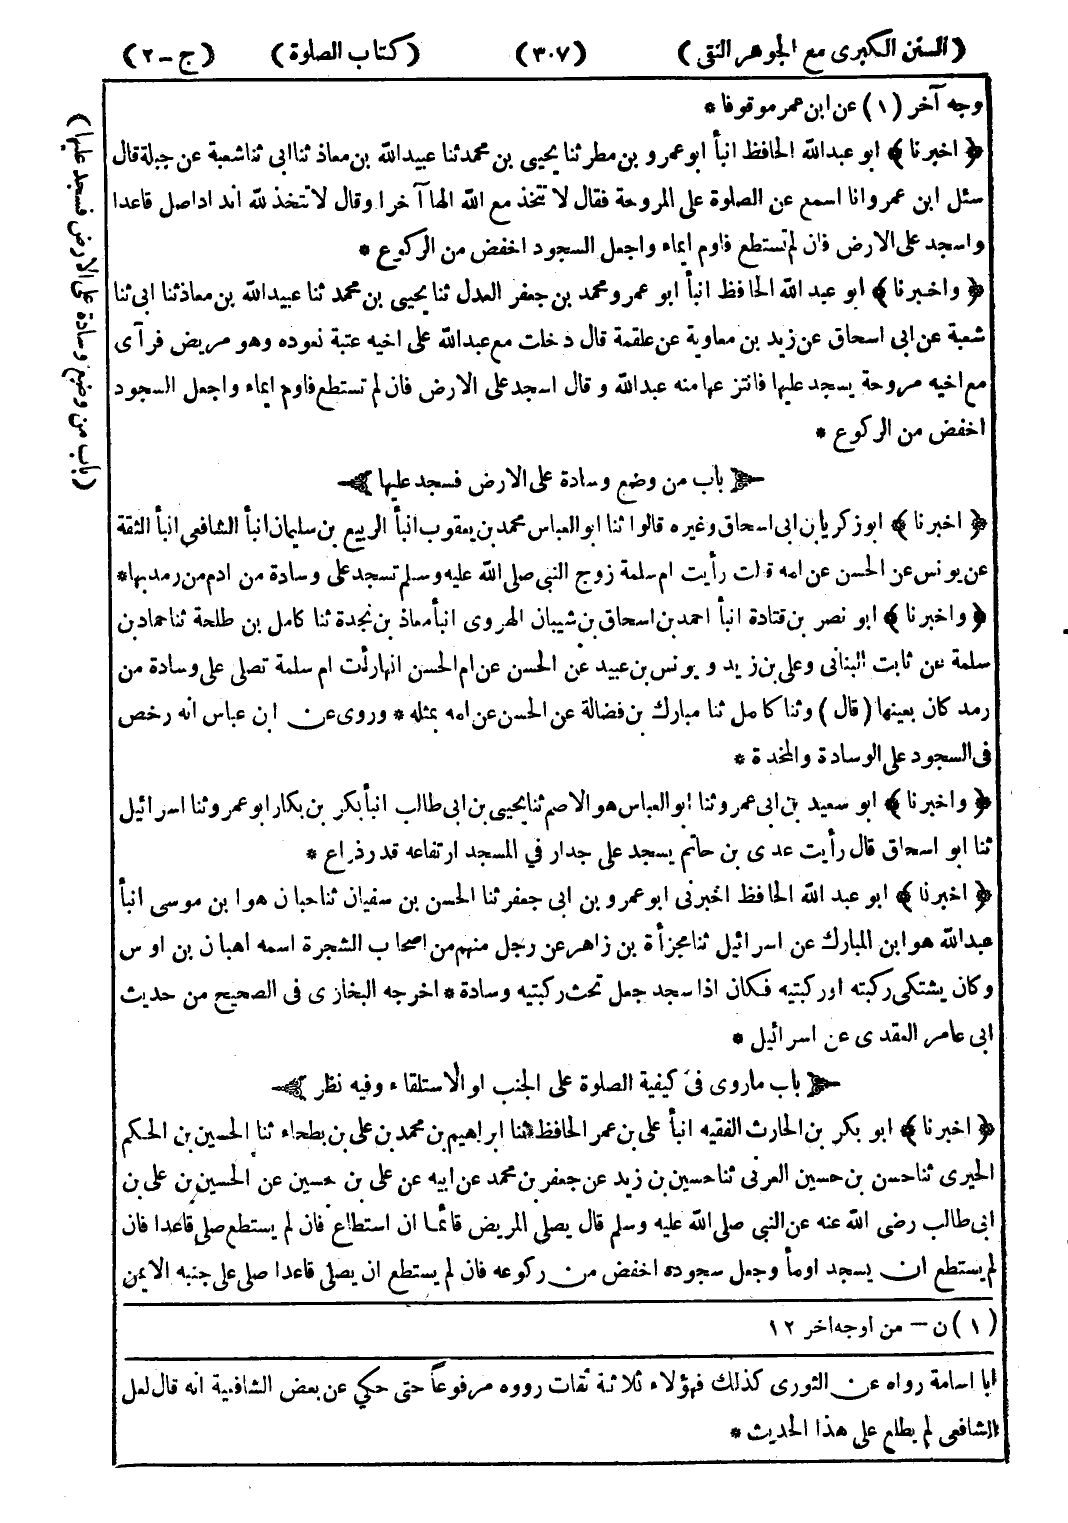 (السنن الكبرى مع الجوهر النقى) (٣٠٧) (كتاب الصلوة) (ج-٢)
(باب من وضع وسادة على الارض فسجد عليها)
وجه آخر (١) عن ابن عمر موقوفا *
﴿ اخبرنا ﴾ ابو عبدالله الحافظ انبأ ابو عمرو بن مطر ثنا يحيى بن محمد ثنا عبيدالله بن معاذ ثنا ابى ثنا شعبة عن جبلة قال
سئل ابن عمر وانا اسمع عن الصلوة على المروحة فقال لا تتخذ مع الله الها آخر او قال لا تتخذ لله اندادا صل قاعدا
واسجد على الارض فان لم تستطع فاوم ايماء واجعل السجود اخفض من الركوع *
﴿ واخبرنا ﴾ ابو عبد الله الحافظ انبأ ابو عمرو محمد بن جعفر العدل ثنا يحيى بن محمد ثنا عبيدالله بن معاذ ثنا ابى ثنا
شعبة عن ابى اسحاق عن زيد بن معاوية عن علقمة قال دخلت مع عبدالله على اخيه عتبة نعوده وهو مريض فرآى
مع اخيه مروحة يسجد عليها فانتزعها منه عبدالله و قال اسجد على الارض فان لم تستطع فاوم ايماء واجعل السجود
اخفض من الركوع *
باب من وضع وسادة على الارض فسجد عليها
﴿ اخبرنا ﴾ ابو زكريا بن ابى اسحاق وغيره قالوا ثنا ابو العباس محمد بن يعقوب انبأ الربيع بن سليمان انبأ الشافعى انبأ الثقة
عن يونس عن الحسن عن امه قالت رأيت ام سلمة زوج النبى صلى الله عليه وسلم تسجد على وسادة من ادم من رمد بها *
﴿ واخبرنا ﴾ ابو نصر بن قتادة انبأ احمد بن اسحاق بن شيبان الهروى انبأ معاذ بن نجدة ثنا كامل بن طلحة ثنا حماد بن
سلمة عن ثابت البنانى وعلى بن زيد و يونس بن عبيد عن الحسن عن ام الحسن انها رئت ام سلمة تصلى على وسادة من
رمد كان بعينها (قال) وثنا كامل ثنا مبارك بن فضالة عن الحسن عن امه بمثله * وروى عن ابن عباس انه رخص
فى السجود على الوسادة والمخدة *
﴿ واخبرنا ﴾ ابو سعيد بن ابى عمرو ثنا ابو العباس هو الاصم ثنا يحيى بن ابى طالب انبأ بكر بن بكار ابو عمرو ثنا اسرائيل
ثنا ابو اسحاق قال رأيت عدى بن حاتم يسجد على جدار في المسجد ارتفاعه قدر ذراع *
﴿ اخبرنا ﴾ ابو عبد الله الحافظ اخبرنى ابو عمرو بن ابى جعفر ثنا الحسن بن سفيان ثنا حبان هو ابن موسى انبأ
عبدالله هو ابن المبارك عن اسرائيل ثنا مجزأة بن زاهر عن رجل منهم من اصحاب الشجرة اسمه اهبان بن اوس
وكان يشتكى ركبته او ركبتيه فكان اذا سجد جعل تحت ركبتيه وسادة * اخرجه البخارى فى الصحيح من حديث
ابى عامر العقدى عن اسرائيل *
باب ما روى فى كيفية الصلوة على الجنب او الاستلقاء وفيه نظر
﴿ اخبرنا ﴾ ابو بكر بن الحارث الفقيه انبأ على بن عمر الحافظ ثنا ابراهيم بن محمد بن على بن بطحاء ثنا الحسين بن الحكم
الحيرى ثنا حسن بن حسين العرنى ثنا حسين بن زيد عن جعفر بن محمد عن ابيه عن على بن حسين عن الحسين بن على بن
ابى طالب رضى الله عنه عن النبى صلى الله عليه وسلم قال يصلى المريض قائما ان استطاع فان لم يستطع صلى قاعدا فان
لم يستطع ان يسجد اومأ وجعل سجوده اخفض من ركوعه فان لم يستطع ان يصلى قاعدا صلى على جنبه الايمن
(١) ن - من اوجه اخر ١٢
ابا اسامة رواه عن الثورى كذلك فهؤلاء ثلاثة ثقات رووه مرفوعاً حتى حكي عن بعض الشافعية انه قال لعل
الشافعى لم يطلع على هذا الحديث *